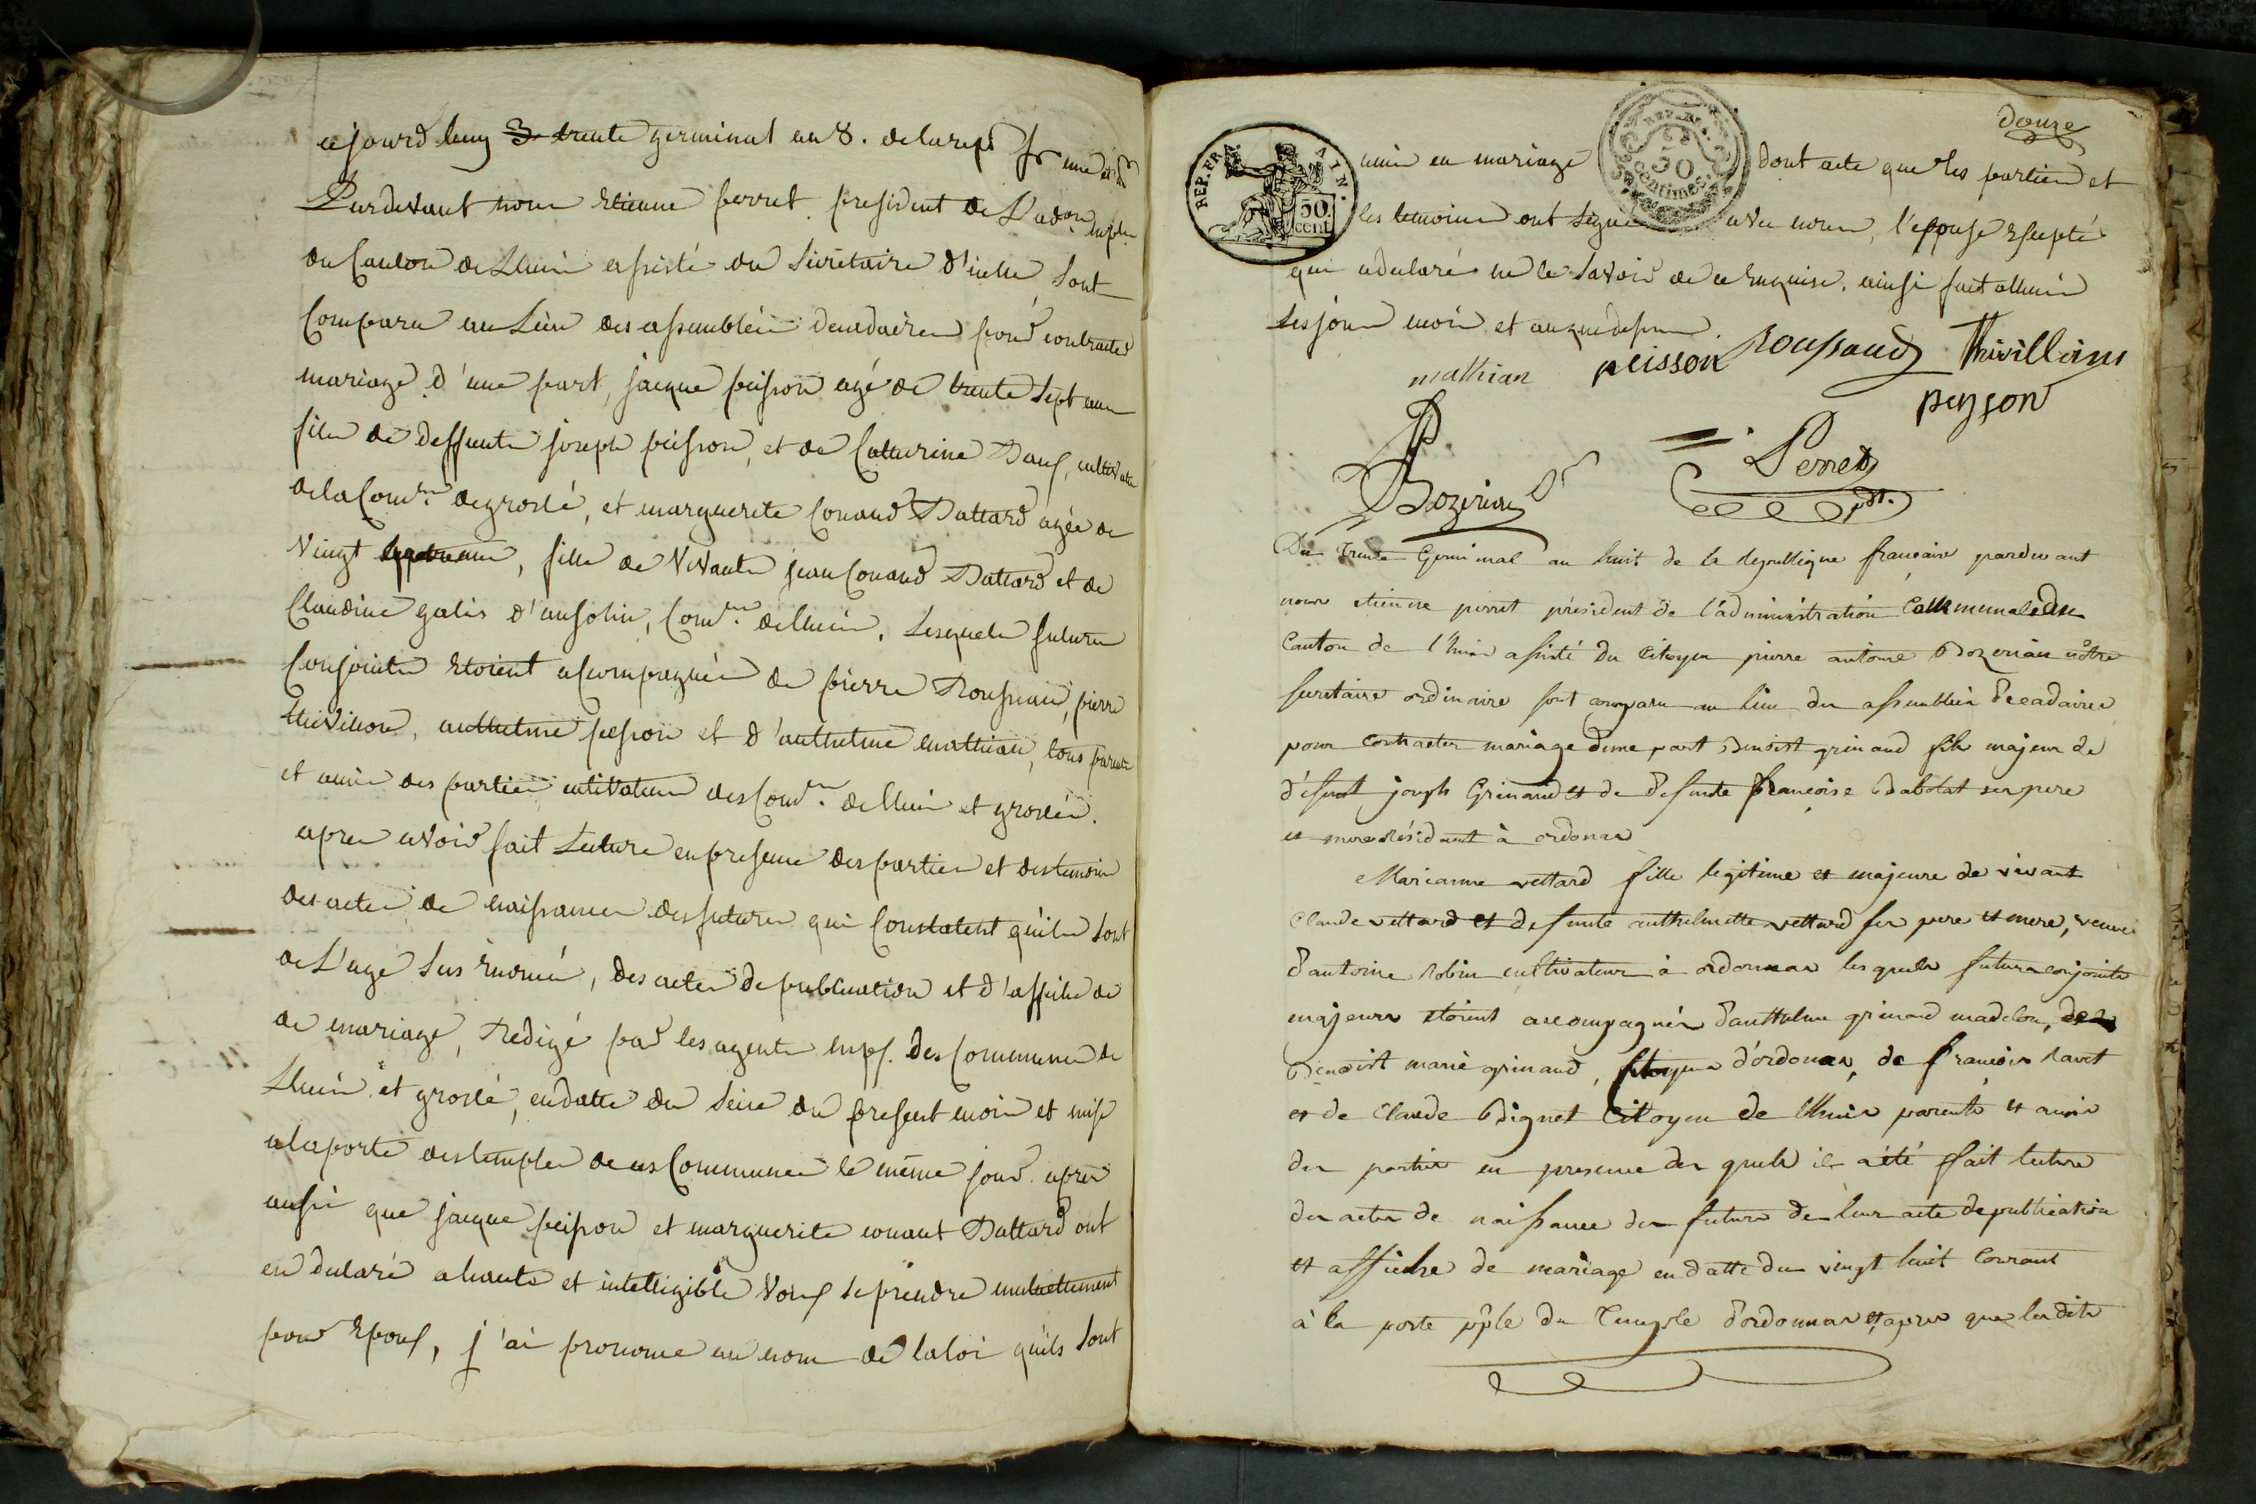 ce jourd'huy trente germinal an 8. de la rep. fr. une et ind
Pardevant nous Etienne perret president de L'adon. mple.
du Canton de Lhuis assisté du Sécrétaire d'icelle, Sont
Comparu au Lieu des assemblées decadaires pour contracter
mariage d'une part, jacque peisson agé de trente Sept ans
fils de deffunts joseph peisson, et de Catherine Douf, cultivateur
de la Comne. de groslé, et marguerite Conand Dattard agée de
vingt , fille de vivants jean Conand Dattard et de
Claudine galis d'ansolin, Comne. de Lhuis, Lesquels futurs
Conjoints Etoient accompagnés de pierre Roussaud, pierre
thivillion, anthelme peisson et d'anthelme mathian, tous parents
et amis des parties cultivateurs des Comnes. de Lhuis et groslée.
apres avoir fait Lecture en presence des parties et des temoins
des actes de naissances des futurs qui Constatent qu'ils Sont
de L'age Sus Enoncé, des actes de publication et d'affiche de
de mariage, Redigé par les agents mpx. des Communes de
Lhuis et groslé, en datte du Seize du present mois et mise
a la porte des temples de ces Communes le même jour. apres
aussi que jacque peisson et marguerite conant Dattard ont
eu declaré a haute et intelligible Voix Se prendre mutuellement
pour Epoux, j'ai prononcé au nom de la loi qu'ils Sont
douze
REP. FRA. AIN. 50. cent.
REP. FRA. 50 Centimes
unis en mariage dont acte que les parties et
les temoins ont Signé avec nous, l'epouse Exceptée
qui a declaré ne le Savoir de ce Enquise. ainsi fait a Lhuis
Les jour mois et an que dessus.
mathian peisson Roussaud Thivillion
peysson
Bozerian Sr
Perret pdt.
Du Trente Germinal an huit de la Republique française pardevant
nous etienne perret président de l'administration Communale du
Canton de l'huis assisté du Citoyen pierre antoine Bozerian nôtre
secretaire ordinaire sont comparu au lieu des assemblées Decadaires
pour contracter mariage d'une part Benoist grinand fils majeur de
défunt joseph Grinand et de defunte françoise Babolat ses pere
et mere Résidant à ordonas
Marianne vettard fille legitime et majeure de vivant
Claude vettard et defunte anthelmette vettard ses pere et mere, veuve
d'antoine Robin cultivateur à ordonnas lesquels futurs conjoints
majeurs etoient accompagnés d'anthelme grinand madelon,
Benoist marie grinand, d'ordonas, de françois Ravet
et de Claude Bignet Citoyen de lhuis parents et amis
des parties en presence des quels il a été fait lecture
des actes de naissance des futurs de leur acte de publication
et affiche de mariage en datte du vingt huit Courant
à la porte pple du Temple d'ordonnas et apres que lesdits